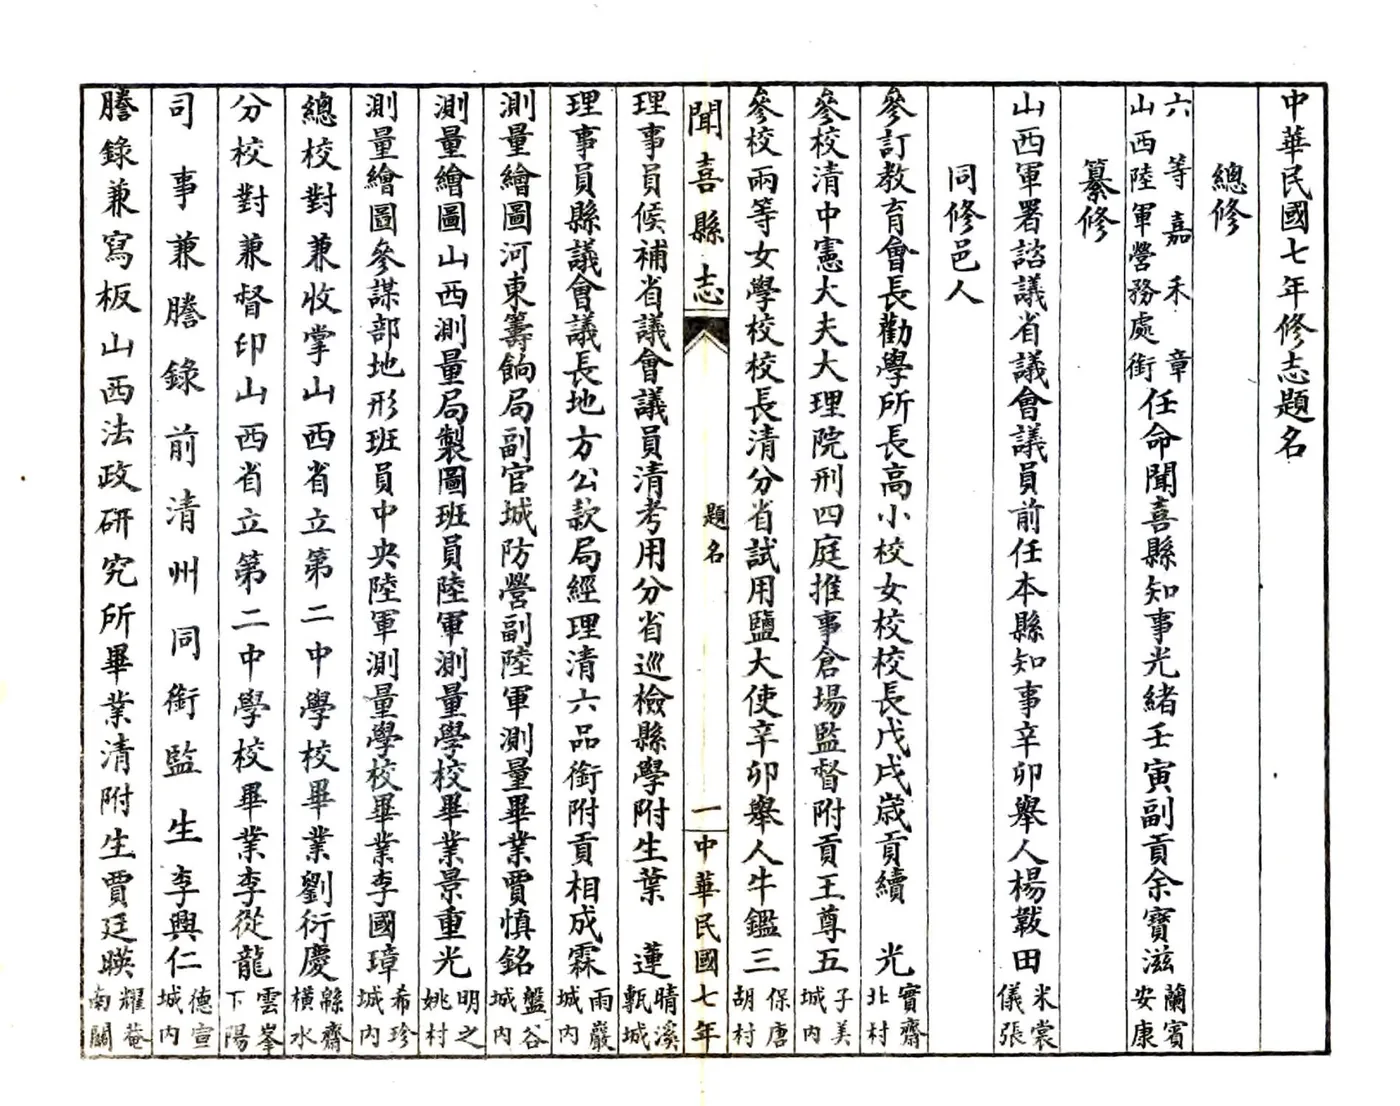 中華民國七年修志題名
總修
六等嘉禾章
山西陸軍營務處銜
任命聞喜縣知事光緒壬寅副貢余寶滋
蘭賓
安康
纂修
山西軍署諮議省議會議員前任本縣知事辛卯舉人楊韍田
米裳
儀張
同修邑人
參訂教育會長勸學所長高小校女校校長戊戌歲貢續 光
實齋
北村
參校清中憲大夫大理院刑四庭推事倉場監督附貢王尊五
子美
城內
參校兩等女學校校長清分省試用鹽大使辛卯舉人牛鑑三
保唐
胡村
聞喜縣志
題名
一
中華民國七年
理事員候補省議會議員清考用分省巡檢縣學附生葉 蓮
晴溪
甄城
理事員縣議會議長地方公款局經理清六品銜附貢相成霖
雨巖
城內
測量繪圖河東籌餉局副官城防營副陸軍測量畢業賈慎銘
盤谷
城內
測量繪圖山西測量局製圖班員陸軍測量學校畢業景重光
明之
姚村
測量繪圖參謀部地形班員中央陸軍測量學校畢業李國璋
希珍
城內
總校對兼收掌山西省立第二中學校畢業劉衍慶
緜齋
橫水
分校對兼督印山西省立第二中學校畢業李從龍
雲峯
下陽
司事兼謄錄前清州同銜監生李興仁
德宣
城內
謄錄兼寫板山西法政研究所畢業清附生賈廷暎
耀菴
南關